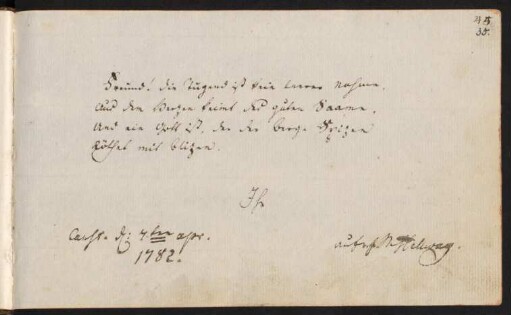 45
35.
Freund! die Tugend ist kein leerer Nahme.
Aus dem Herzen keimt des guten Saame.
Und ein Gott ist, der der Berge Spizen
Röthet mit blizen.
Ihr
d: 7ten apr.
1782.